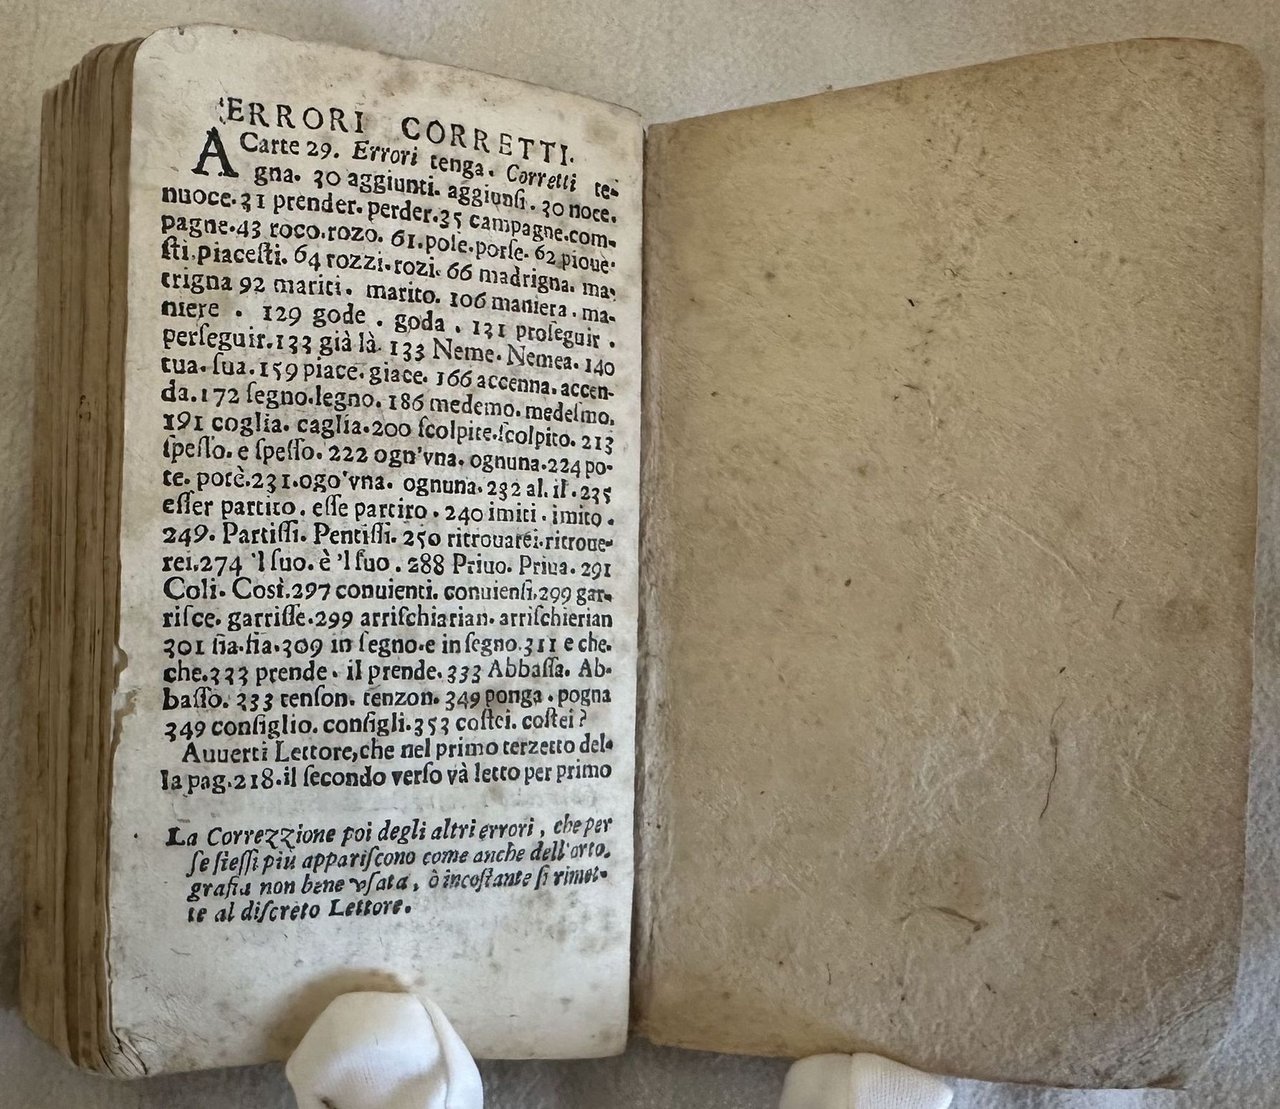 ERRORI CORRETTI.
A Carte 29. Errori tenga. Corretti te-
gna. 30 aggiunti. aggiunſi. 30 noce.
nuoce. 31 prender. perder. 35 campagne. com-
pagne. 43 roco. rozo. 61. poſe. porſe. 62 pioue-
ſti. piaceſti. 64 rozzi. rozi. 66 madrigna. ma-
trigna 92 mariti. marito. 106 maniera. ma-
niere. 129 gode. goda. 131 proſeguir.
perſeguir. 133 già là. 133 Neme. Nemea. 140
tua. ſua. 159 piace. giace. 166 accenna. accen-
da. 172 ſegno. legno. 186 medemo. medeſmo.
191 coglia. caglia. 200 ſcolpite. ſcolpito. 213
ſpeſſo. e ſpeſſo. 222 ogn'vna. ognuna. 224 po-
te. potè. 231. ogo'vna. ognuna. 232 al. il. 235
eſſer partito. eſſe partiro. 240 imiti. imito.
249. Partiſſi. Pentiſſi. 250 ritrouarei. ritroue-
rei. 274 'l ſuo. è 'l ſuo. 288 Priuo. Priua. 291
Coli. Così. 297 conuienti. conuienſi. 299 gar-
riſce. garriſſe. 299 arriſchiarian. arriſchierian
301 ſia. fia. 309 in ſegno. e in ſegno. 311 e che.
che. 333 prende. il prende. 333 Abbaſſa. Ab-
baſſo. 333 tenſon. tenzon. 349 ponga. pogna
349 conſiglio. conſigli. 353 coſtei. coſtei?
Auuerti Lettore, che nel primo terzetto del-
la pag. 218. il ſecondo verſo và letto per primo
La Correzzione poi degli altri errori, che per
ſe ſteſſi più appariſcono come anche dell'orto-
grafia non bene vſata, ò incoſtante ſi rimet-
te al diſcreto Lettore.